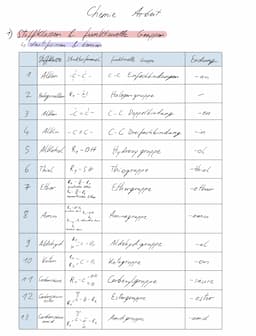 Chemie Arbeit
1) Stoffklassen & funktionelle Gruppen
↳ identifizieren & benennen
Stoffklasse Strukturformel funktionelle Gruppe Endung
1 Alkan C-C Einfachbindungen -an
2 Halogenalkan Halogengruppe -
3 Alken C-C Doppelbindung -en
4 Alkin C-C Dreifachbindung -in
5 Alkohol R₁-OH Hydroxygruppe -ol
6 Thiol R₁-SH Thiolgruppe -thiol
7 Ether Ethergruppe -ether
8 Amin Aminogruppe -amin
9 Aldehyd Aldehydgruppe -al
10 Keton Ketogruppe -on
11 Carbonsäure Carboxylgruppe -säure
12 Carbonsäureester Estergruppe -ester
13 Carbonsäureamid Amidgruppe -amid